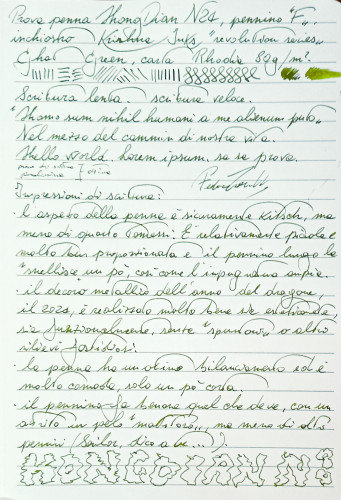 Prova penna ZhongDian N24, pennino "F",
inchiostro Krishna Inks "revolution series"
Ghat Green, carta Rhodia 80g/m².
Scrittura lenta. scrittura veloce.
"Homo sum nihil humani a me alienum puto"
Nel mezzo del cammin di nostra vita.
Hello world, lorem ipsum. sa sa prova.
Impressioni di scrittura:
· l'aspetto della penna è sicuramente Kitsch, ma
meno di quanto temessi. È relativamente piccola e
molto ben proporzionata e il pennino lungo la
snellisce un pò, così come l'impugnatura ampia.
· il decoro metallico dell'anno del dragone,
il 2024, è realizzato molto bene sia esteticamente,
sia funzionalmente, senza "spuntoni" o altri
rilievi fastidiosi.
· la penna ha un ottimo bilanciamento ed è
molto comoda, solo un pò corta.
· il pennino fa benone quel che deve, con un
attrito un pelo "matitoso", ma meno di altri
pennini (Sailor, dico a te...).
HONGDIAN N